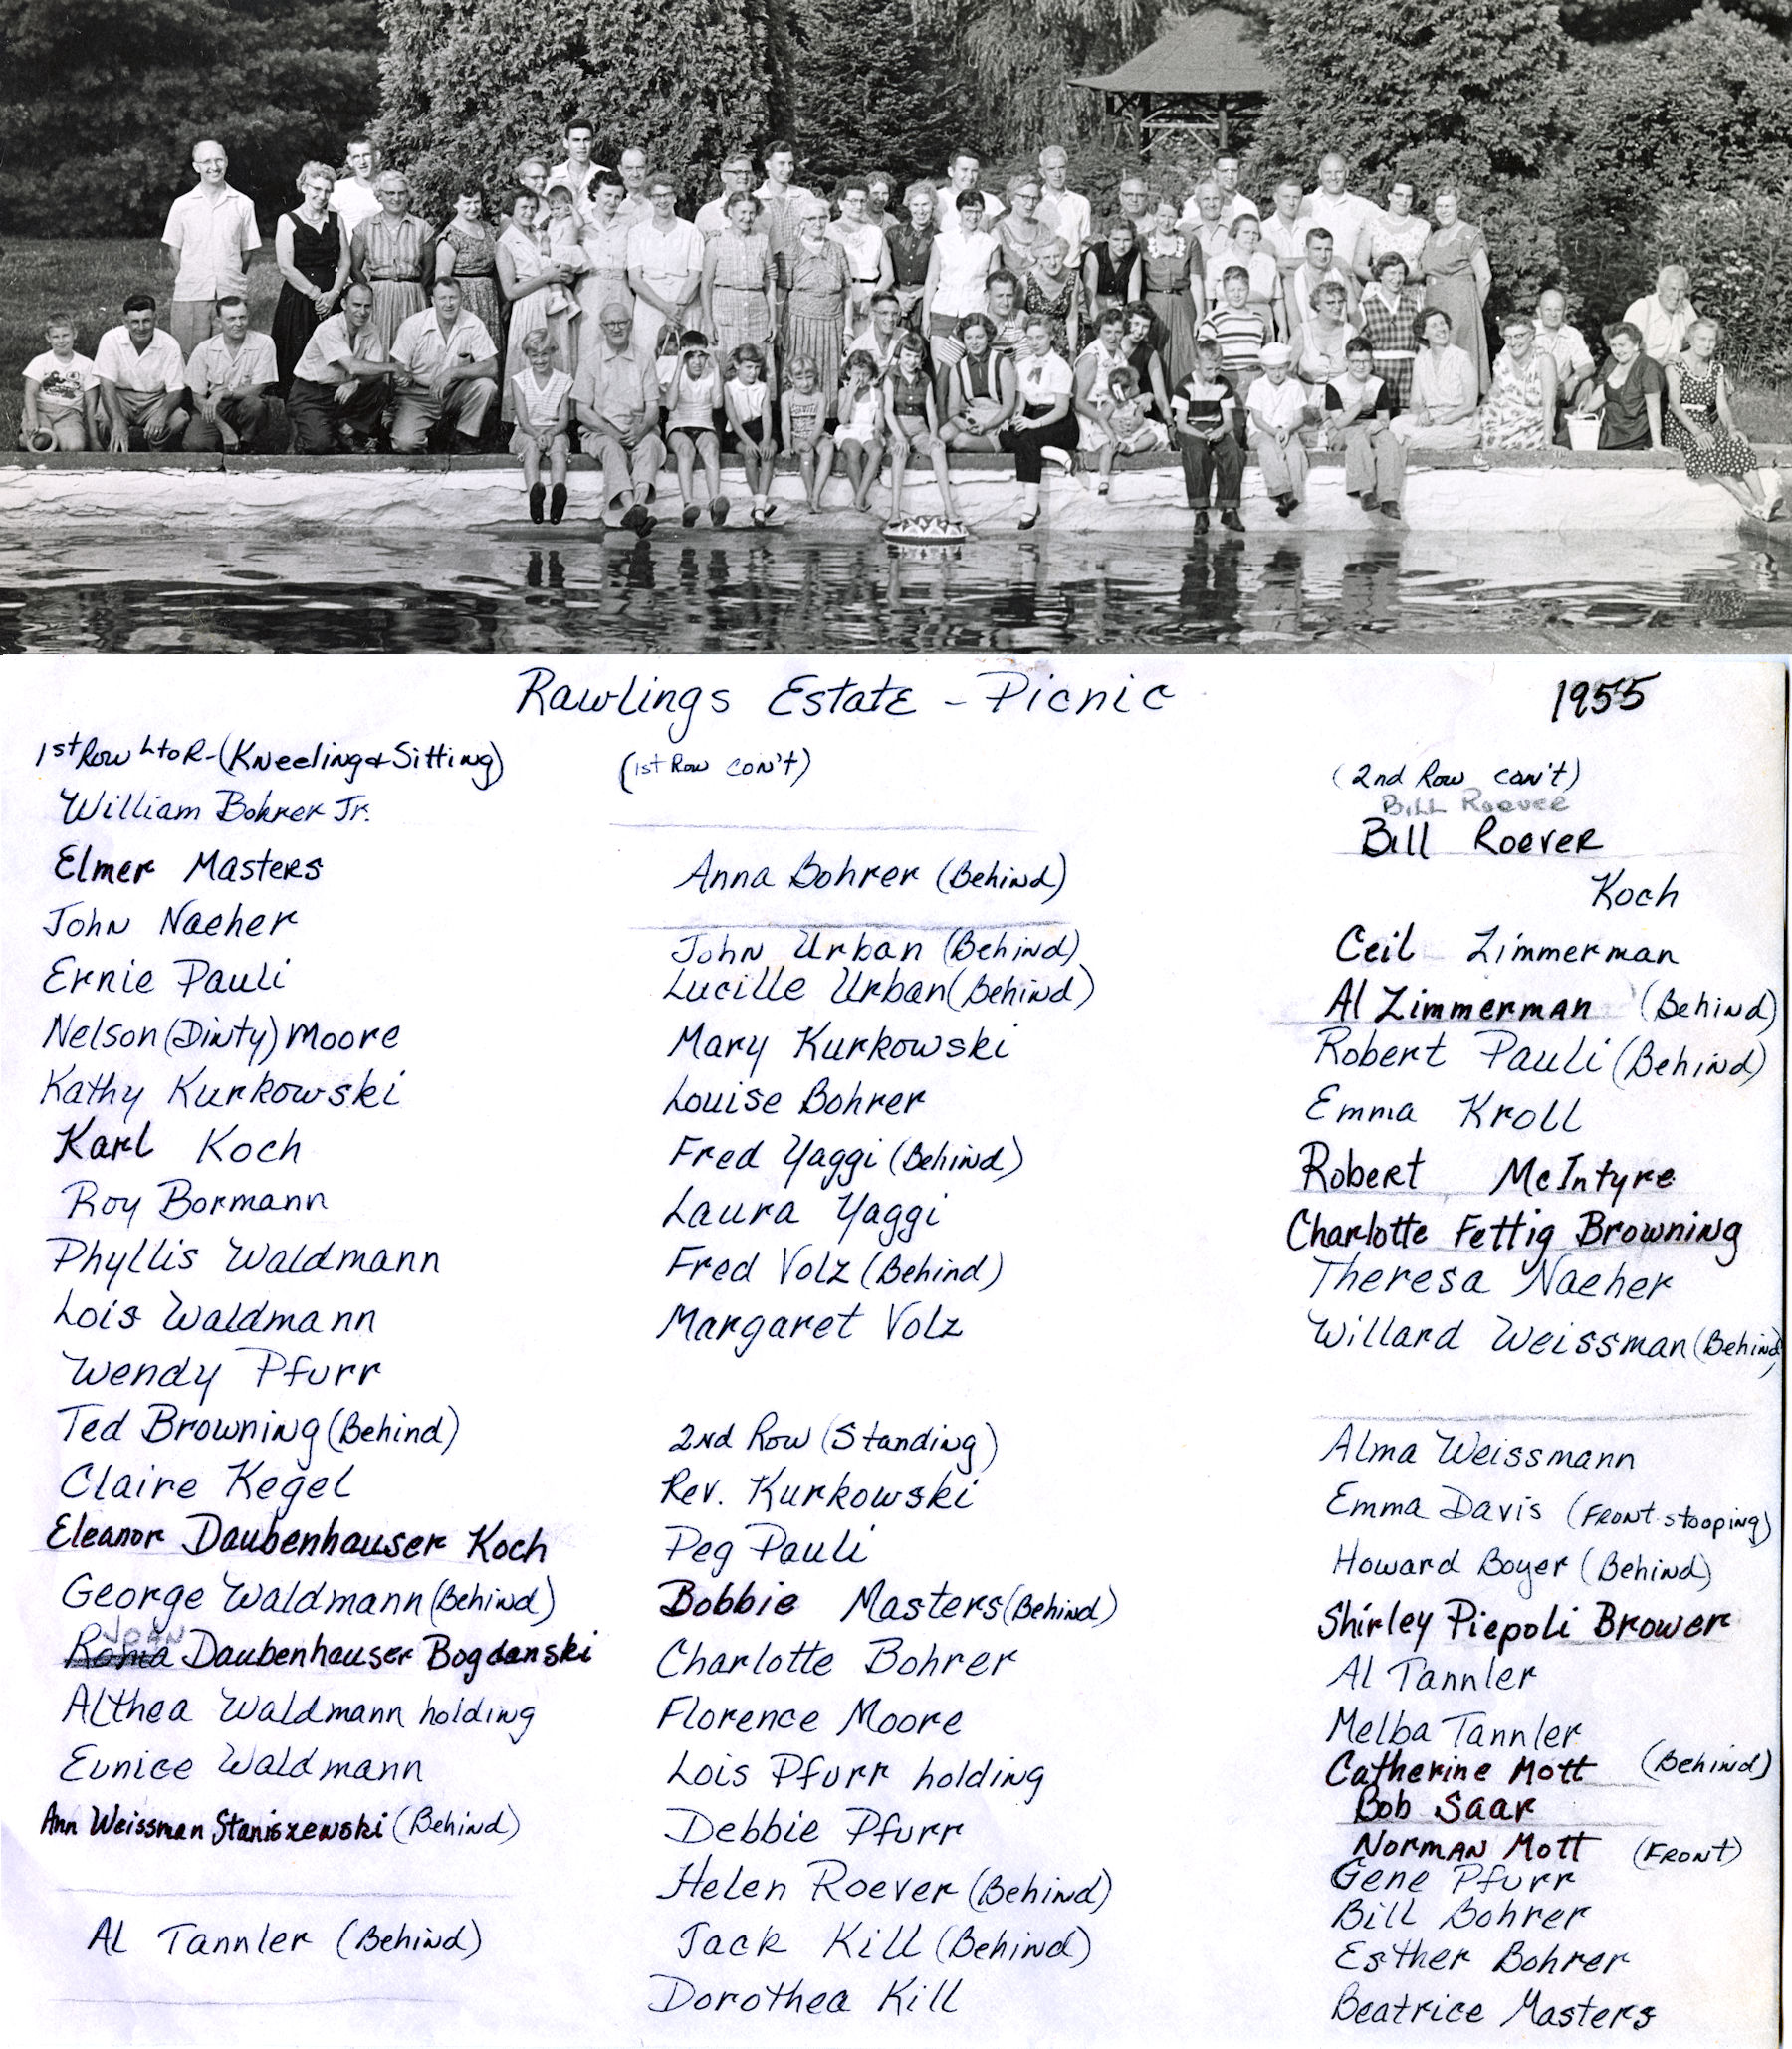 Rawlings Estate - Picnic
1955
1st Row L to R - (Kneeling & Sitting)
William Bohrer Jr.
Elmer Masters
John Naeher
Ernie Pauli
Nelson (Dinty) Moore
Kathy Kurkowski
Karl Koch
Roy Bormann
Phyllis Waldmann
Lois Waldmann
Wendy Pfurr
Ted Browning (Behind)
Claire Kegel
Eleanor Daubenhauser Koch
George Waldmann (Behind)
JOAN
Daubenhauser Bogdanski
Althea Waldmann holding
Eunice Waldmann
Ann Weissman Staniszewski (Behind)
Al Tannler (Behind)
(1st Row con't)
Anna Bohrer (Behind)
John Urban (Behind)
Lucille Urban (Behind)
Mary Kurkowski
Louise Bohrer
Fred Yaggi (Behind)
Laura Yaggi
Fred Volz (Behind)
Margaret Volz
2nd Row (Standing)
Rev. Kurkowski
Peg Pauli
Bobbie Masters (Behind)
Charlotte Bohrer
Florence Moore
Lois Pfurr holding
Debbie Pfurr
Helen Roever (Behind)
Jack Kill (Behind)
Dorothea Kill
(2nd Row con't)
Bill Roever
Bill Roever
Koch
Ceil Zimmerman
Al Zimmerman (Behind)
Robert Pauli (Behind)
Emma Kroll
Robert McIntyre
Charlotte Fettig Browning
Theresa Naeher
Willard Weissman (Behind)
Alma Weissmann
Emma Davis (Front stooping)
Howard Boyer (Behind)
Shirley Piepoli Brower
Al Tannler
Melba Tannler
Catherine Mott (Behind)
Bob Saar
Norman Mott (Front)
Gene Pfurr
Bill Bohrer
Esther Bohrer
Beatrice Masters